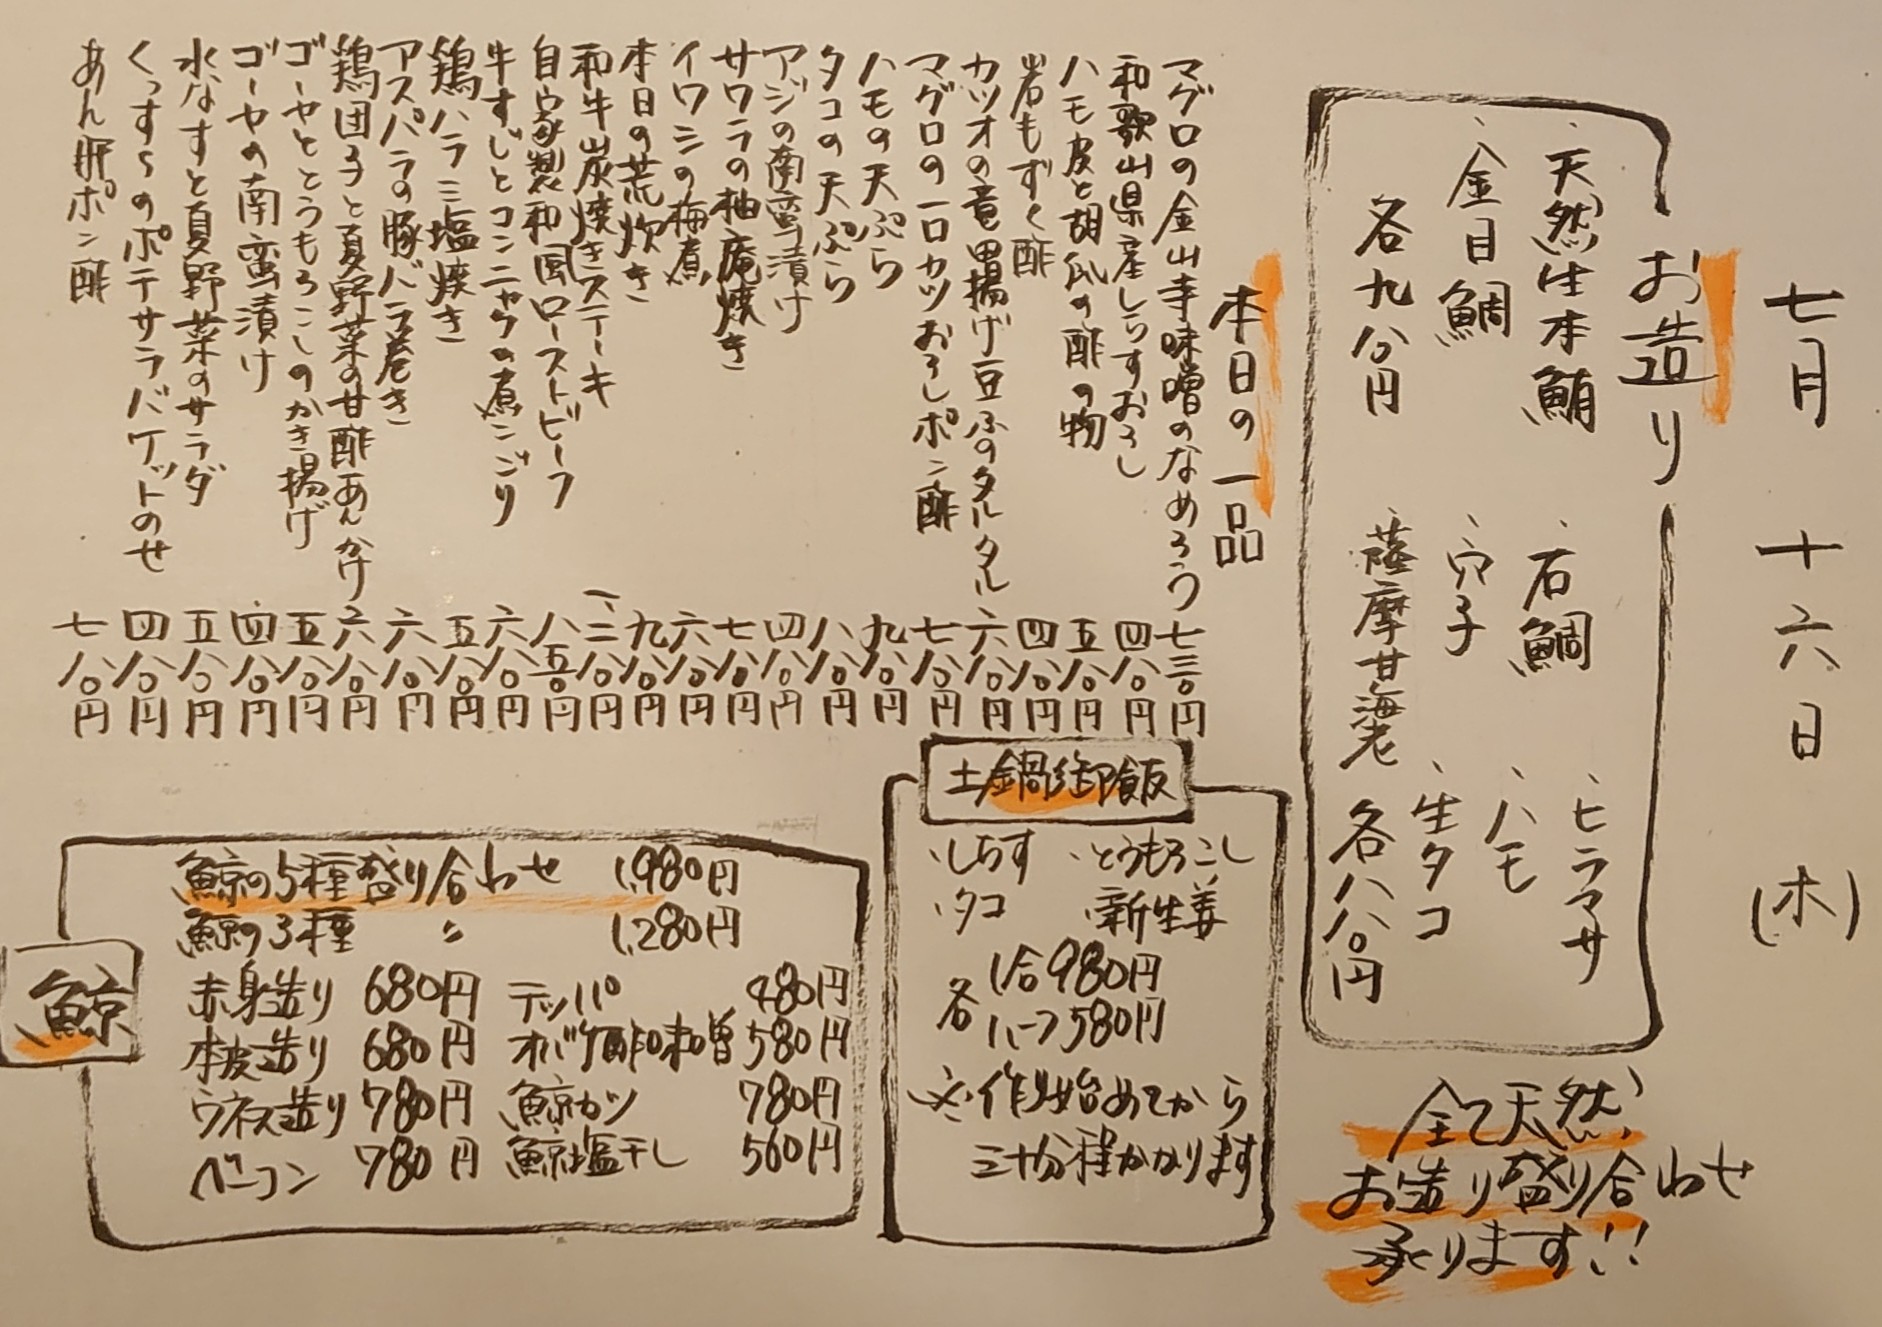 七月 十六日 (木)
お造り
、天然生本鮪
、金目鯛
各九八〇円
、石鯛
、穴子
、薩摩甘海老
、ヒラマサ
、ハモ
、生タコ
各八八〇円
全て天然
お造り盛り合わせ
承ります!!
本日の一品
マグロの金山寺味噌のなめろう 七三〇円
和歌山県産しらすおろし 四八〇円
ハモ皮と胡瓜の酢の物 五八〇円
岩もずく酢 四八〇円
カツオの竜田揚げ豆ふのタルタル 六八〇円
マグロの一口カツおろしポン酢 七八〇円
ハモの天ぷら 九八〇円
タコの天ぷら 八八〇円
アジの南蛮漬け 四八〇円
サワラの柚庵焼き 七八〇円
イワシの梅煮 六八〇円
本日の荒炊き 九八〇円
和牛炭焼きステーキ 一、二八〇円
自家製和風ローストビーフ 八五〇円
牛すじとコンニャクの煮こごり 六八〇円
鶏ハラミ塩焼き 五八〇円
アスパラの豚バラ巻き 六八〇円
鶏団子と夏野菜の甘酢あんかけ 六八〇円
ゴーヤととうもろこしのかき揚げ 五八〇円
ゴーヤの南蛮漬け 四八〇円
水なすと夏野菜のサラダ 五八〇円
くっすらのポテサラバケットのせ 四八〇円
あん肝ポン酢 七八〇円
土鍋御飯
・しらす ・とうもろこし
・タコ ・新生姜
各 1合980円
ハーフ580円
※作り始めてから
三十分程かかります
鯨
鯨の5種盛り合わせ 1,980円
鯨の3種 〃 1,280円
赤身造り 680円 テッパ 480円
本皮造り 680円 オバケ酢味噌 580円
ウネス造り 780円 鯨カツ 780円
ベーコン 780円 鯨塩干し 560円